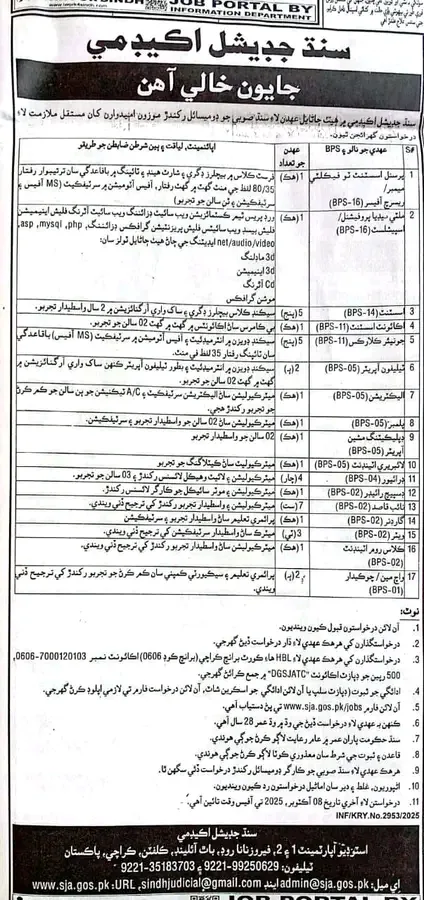 JOB PORTAL BY
INFORMATION DEPARTMENT
سنڌ جوڊيشل اڪيڊمي
جايون خالي آهن
سنڌ جوڊيشل اڪيڊمي ۾ هيٺ ڄاڻايل عهدن لاءِ سنڌ صوبي جو ڊوميسائل رکندڙ موزون اميدوارن کان مستقل ملازمت لاءِ
درخواستون گهرائجن ٿيون.
S# عهدي جو نالو ۽ BPS عهدن جو تعداد اپائنٽمينٽ، لياقت ۽ ٻين شرطن ضابطن جو طريقو
1 پرسنل اسسٽنٽ ٽو فيڪلٽي ميمبر/ ريسرچ آفيسر (BPS-16) 1 (هڪ) فرسٽ ڪلاس ۾ بيچلرز ڊگري ۽ شارٽ هينڊ ۽ ٽائپنگ ۾ باقاعدگي سان ترتيبوار رفتار 80/35 لفظ في منٽ گهٽ ۾ گهٽ رفتار، آفيس آٽوميشن ۾ سرٽيفڪيٽ (MS آفيس ۽ سرٽيفڪيشن ۽ ٽن سالن جو تجربو)
2 ملٽي ميڊيا پروفيشنل/ اسپيشلسٽ (BPS-16) 1 (هڪ) ورڊ پريس ٿيم ڪسٽمائزيشن ويب سائيٽ ڊزائننگ ويب سائيٽ آٿرنگ فليش اينيميشن
فليش بيسڊ ويب سائيٽس فليش پريزنٽيشن گرافڪس ڊزائننگ، asp, mysql, php,
net/audio/video ايڊيٽنگ جي ڄاڻ هيٺ ڄاڻايل ٽولز سان:
3d ماڊلنگ
3d اينيميشن
Cd آٿرنگ
موشن گرافڪس
3 اسسٽنٽ (BPS-14) 5 (پنج) سيڪنڊ ڪلاس بيچلرز ڊگري ۽ ساک واري آرگنائزيشن ۾ 2 سال واسطيدار تجربو.
4 اڪائونٽ اسسٽنٽ (BPS-11) 1 (هڪ) بي ڪامرس ساڻ اڪائونٽس ۾ گهٽ ۾ گهٽ 02 سالن جو تجربو.
5 جونيئر ڪلارڪس (BPS-11) 5 (پنج) سيڪنڊ ڊويزن ۾ انٽرميڊئيٽ ۽ آفيس آٽوميشن ۾ سرٽيفڪيٽ (MS آفيس) باقاعدگي سان ٽائپنگ رفتار 35 لفظ في منٽ.
6 ٽيليفون آپريٽر (BPS-05) 2 (ٻه) سيڪنڊ ڊويزن ۾ انٽرميڊئيٽ ۽ بطور ٽيليفون آپريٽر ڪنهن ساک واري آرگنائزيشن ۾ گهٽ ۾ گهٽ 02 سالن جو تجربو.
7 اليڪٽريشن (BPS-05) 1 (هڪ) ميٽرڪيوليشن ساڻ اليڪٽريشن سرٽيفڪيٽ ۽ A/C ٽيڪنيشن جو ٻن سالن جو ڪم ڪرڻ جو تجربو رکندڙ هجي.
8 پلمبر (BPS-05) 1 (هڪ) ميٽرڪيوليشن ساڻ 02 سالن جو واسطيدار تجربو ۽ سرٽيفڪيشن.
9 ڊپليڪيٽنگ مشين آپريٽر (BPS-05) 1 (هڪ) 02 سالن جو واسطيدار تجربو
10 لائبريري اٽينڊنٽ (BPS-05) 1 (هڪ) ميٽرڪيوليٽ ساڻ ڪيٽلاگنگ جو تجربو
11 ڊرائيور (BPS-04) 4 (چار) ميٽرڪيوليشن ۽ لائيٽ وهيڪل لائسنس رکندڙ ۽ 03 سالن جو تجربو.
12 ڊسپيچ رائيڊر (BPS-02) 1 (هڪ) ميٽرڪيوليشن ۽ موٽر سائيڪل جو ڪارگر لائسنس رکندڙ.
13 نائب قاصد (BPS-02) 7 (ست) ميٽرڪيوليشن ۽ واسطيدار تجربو رکندڙ کي ترجيح ڏني ويندي.
14 گارڊنر (BPS-02) 1 (هڪ) پرائمري تعليم ساڻ واسطيدار تجربو ۽ سرٽيفڪيشن
15 ويٽر (BPS-02) 3 (ٽي) ميٽرڪ ساڻ واسطيدار سرٽيفڪيشن کي ترجيح ڏني ويندي.
16 ڪلاس روم اٽينڊنٽ (BPS-02) 1 (هڪ) ميٽرڪيوليشن ۽ واسطيدار تجربو رکندڙ کي ترجيح ڏني ويندي.
17 واچ مين/ چوڪيدار (BPS-01) 2 (ٻه) پرائمري تعليم ۽ سيڪيورٽي ڪمپني سان ڪم ڪرڻ جو تجربو رکندڙ کي ترجيح ڏني ويندي.
نوٽ:
1. آن لائن درخواستون قبول ڪيون وينديون.
2. درخواستگذارن کي هرهڪ عهدي لاءِ ڌار درخواست ڏيڻ گهرجي.
3. درخواستگذارن کي هرهڪ عهدي لاءِ HBL هاءِ ڪورٽ برانچ ڪراچي (برانچ ڪوڊ 0606) اڪائونٽ نمبر 0606-7000120103،
500 رپين جو ڊپازٽ اڪائونٽ "DGSJATC" ۾ جمع ڪرائڻ گهرجي.
4. ادائگي جو ثبوت (ڊپازٽ سلپ) يا آن لائن ادائگي جو اسڪرين شاٽ، آن لائن درخواست فارم تي لازمي اپلوڊ ڪرڻ گهرجي.
5. آن لائن فارم www.sja.gos.pk/jobs تي پڻ دستياب آهي.
6. ڪنهن به عهدي لاءِ درخواست ڏيڻ جي وڌ ۾ وڌ عمر 28 سال آهي.
7. سنڌ حڪومت پاران عمر ۾ عام رعايت لاڳو ڪرڻ جوڳي هوندي.
8. قاعدن ۽ ثبوت جي شرط سان معذوري ڪوٽا لاڳو ڪرڻ جوڳي هوندي.
9. هرهڪ عهدي لاءِ سنڌ صوبي جو ڪارگر ڊوميسائل رکندڙ درخواست ڏئي سگهن ٿا.
10. اڻپوريون، غلط ۽ دير سان اماڻيل درخواستون رد ڪيون وينديون.
11. درخواست ڏيڻ لاءِ آخري تاريخ 08 آڪٽوبر، 2025 تي آفيس وقت تائين آهي.
INF/KRY.No.2953/2025
سنڌ جوڊيشل اڪيڊمي
اسٽوڊيو اپارٽمينٽ 1 ۽ 2، فيروز نانا روڊ، باٿ آئلينڊ، ڪلفٽن، ڪراچي، پاڪستان
ٽيليفون: 9221-99250629 ۽ 9221-35183703
اي ميل: admin@sja.gos.pk اينڊ sindhjudicial@gmail.com، URL: www.sja.gos.pk
JOB PORTAL BY